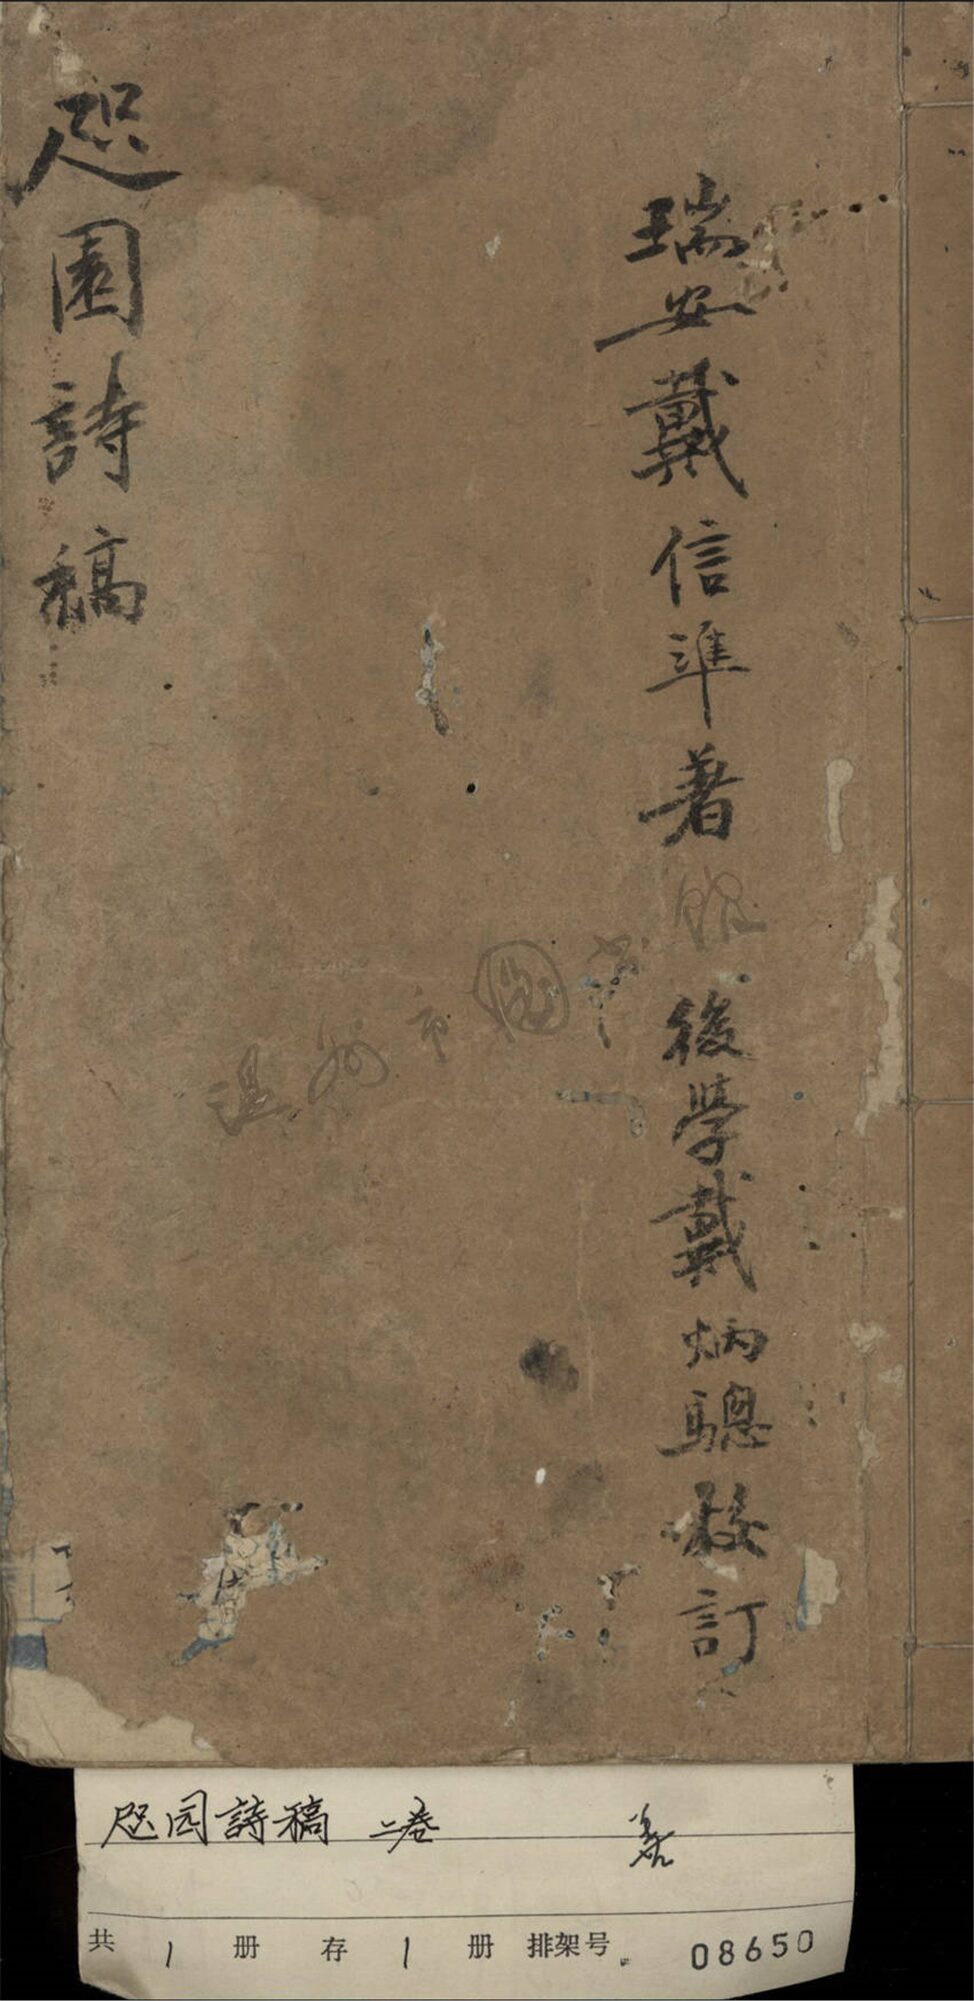 瑞安戴信準著 後學戴炳驄校訂
咫園詩稿
温州市圖書館
咫园詩稿 二卷
共 1 册 存 1 册 排架号 08650